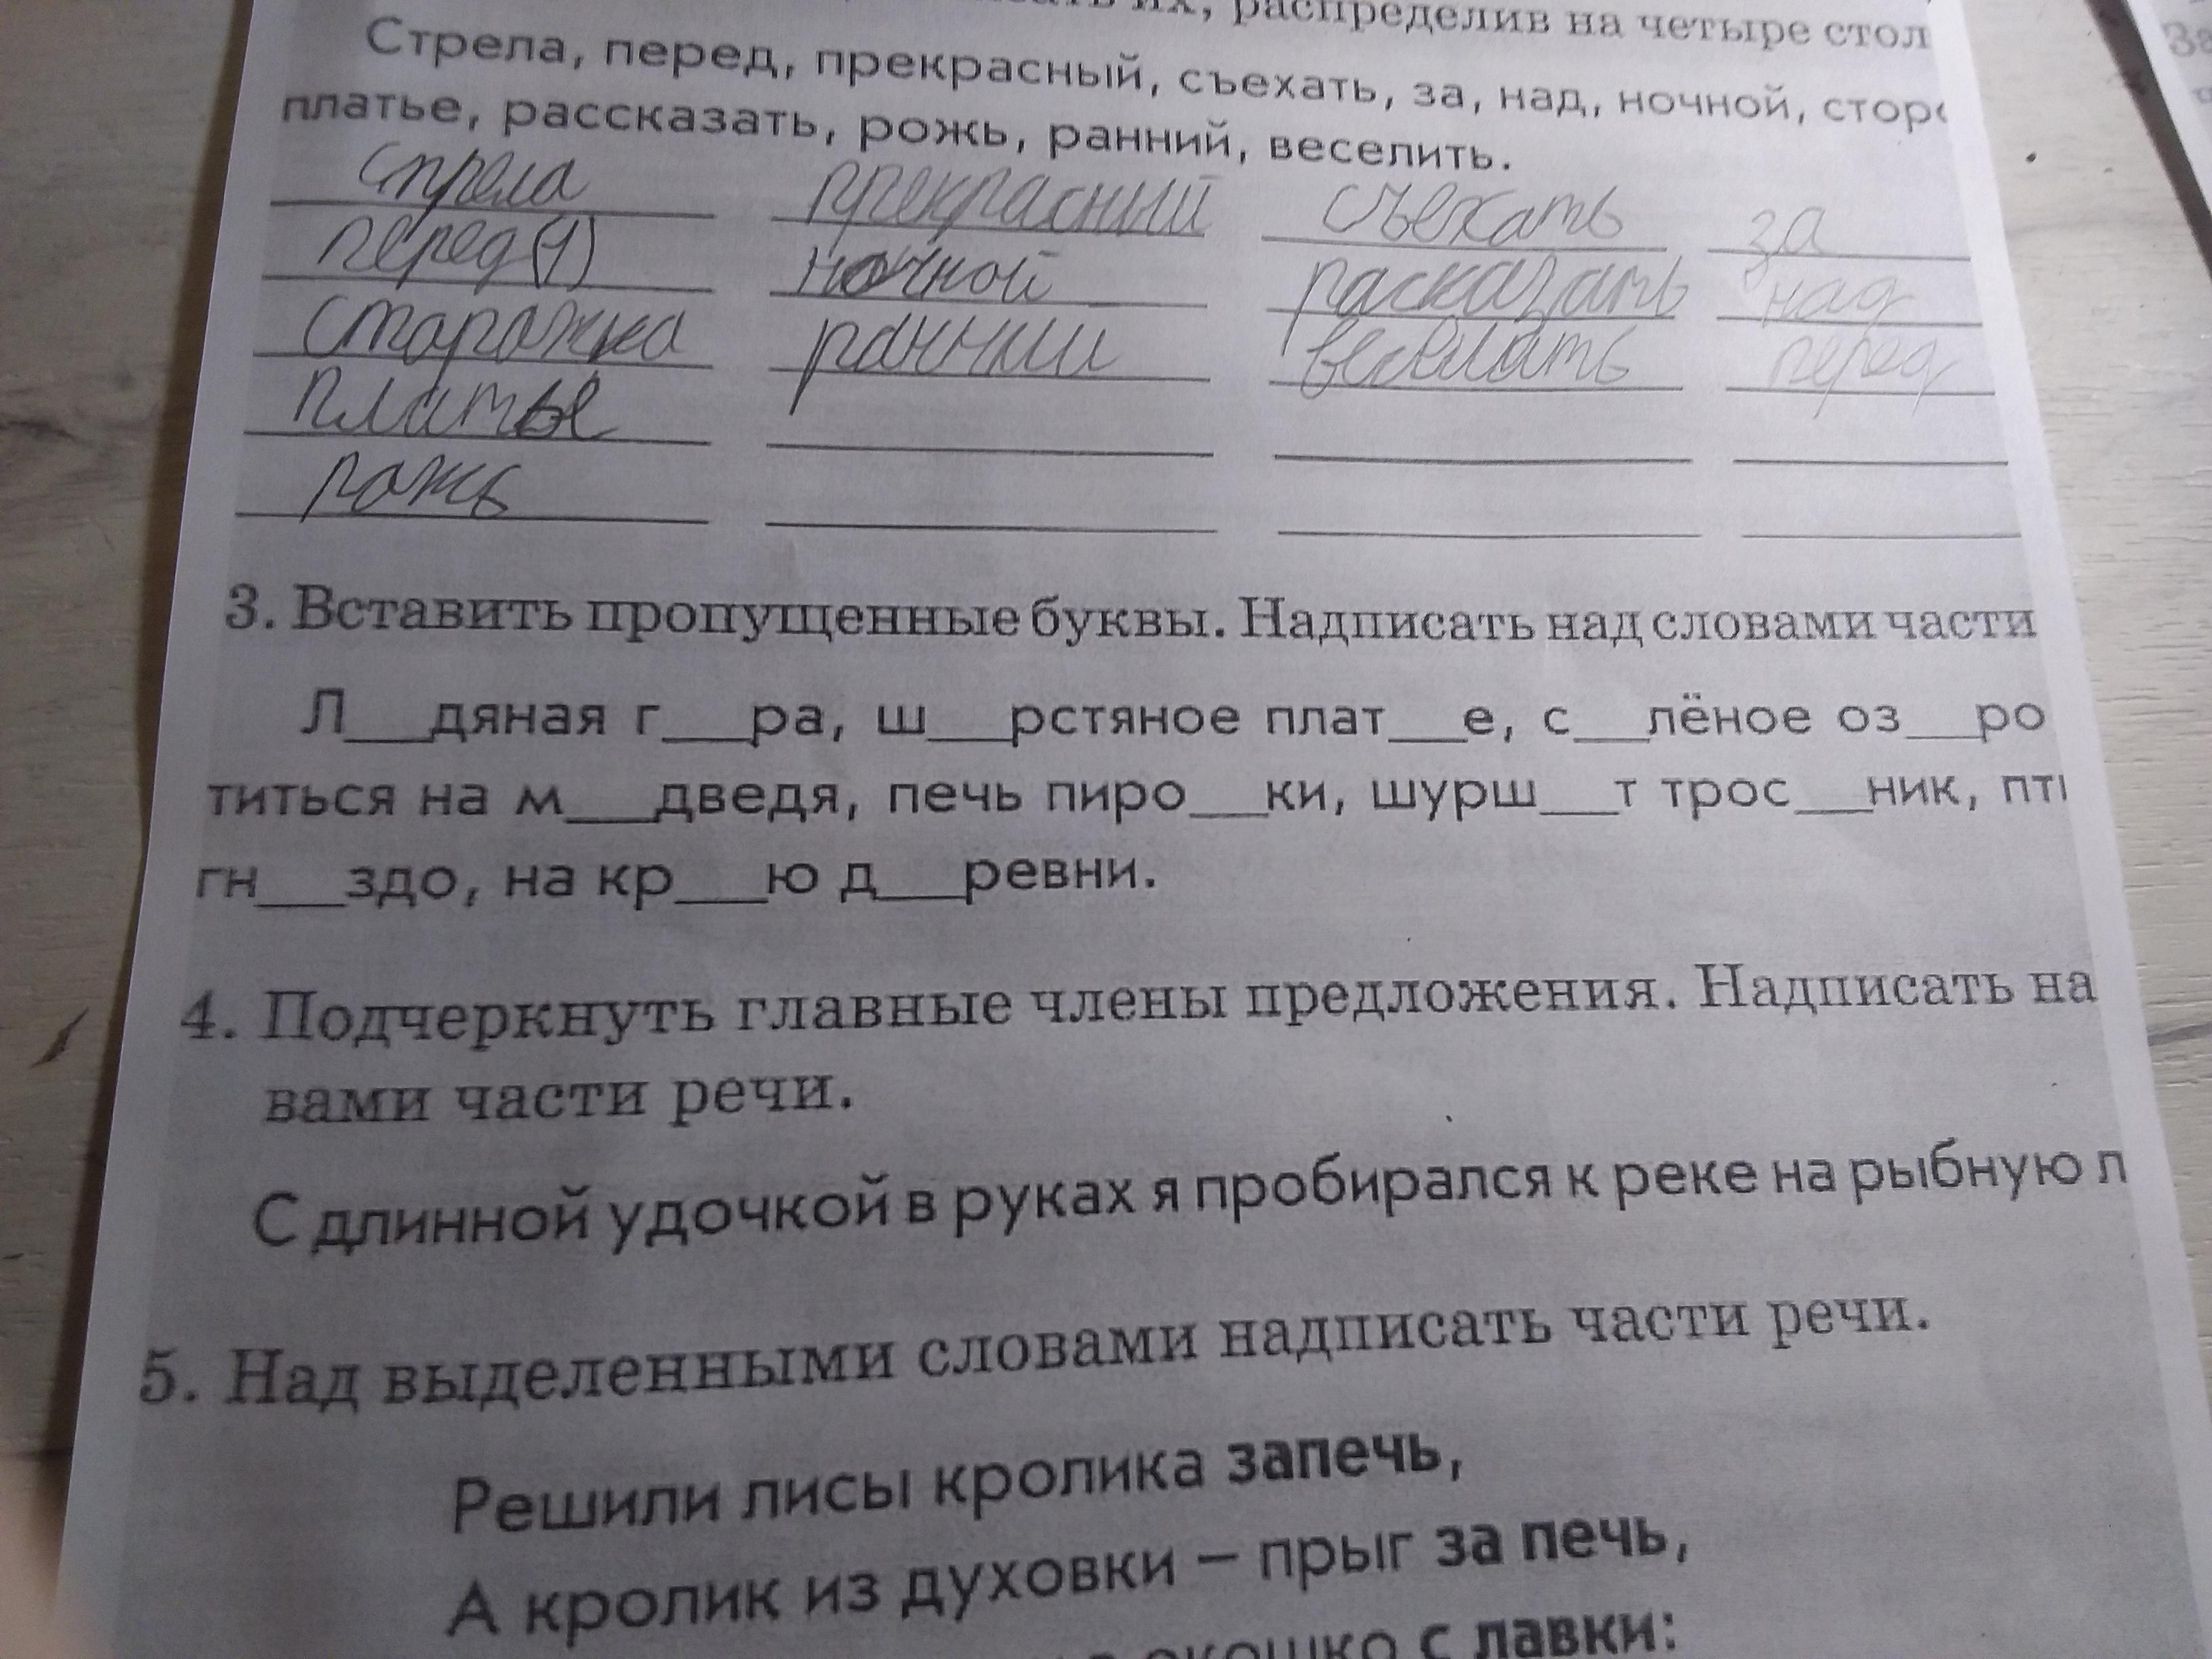 их, распределив на четыре стол
Стрела, перед, прекрасный, съехать, за, над, ночной, сторо
платье, рассказать, рожь, ранний, веселить.
стрела прекрасный съехать за
перед(1) ночной расказать над
старожка ранний веселить перед
платье
рожь
3. Вставить пропущенные буквы. Надписать над словами части
Л__дяная г__ра, ш__рстяное плат__е, с__лёное оз__ро
титься на м__дведя, печь пиро__ки, шурш__т трос__ник, пти
гн__здо, на кр__ю д__ревни.
4. Подчеркнуть главные члены предложения. Надписать на
вами части речи.
С длинной удочкой в руках я пробирался к реке на рыбную л
5. Над выделенными словами надписать части речи.
Решили лисы кролика запечь,
А кролик из духовки – прыг за печь,
окошко с лавки: